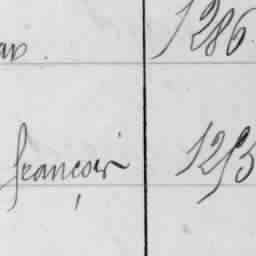 1286.
françois 1253